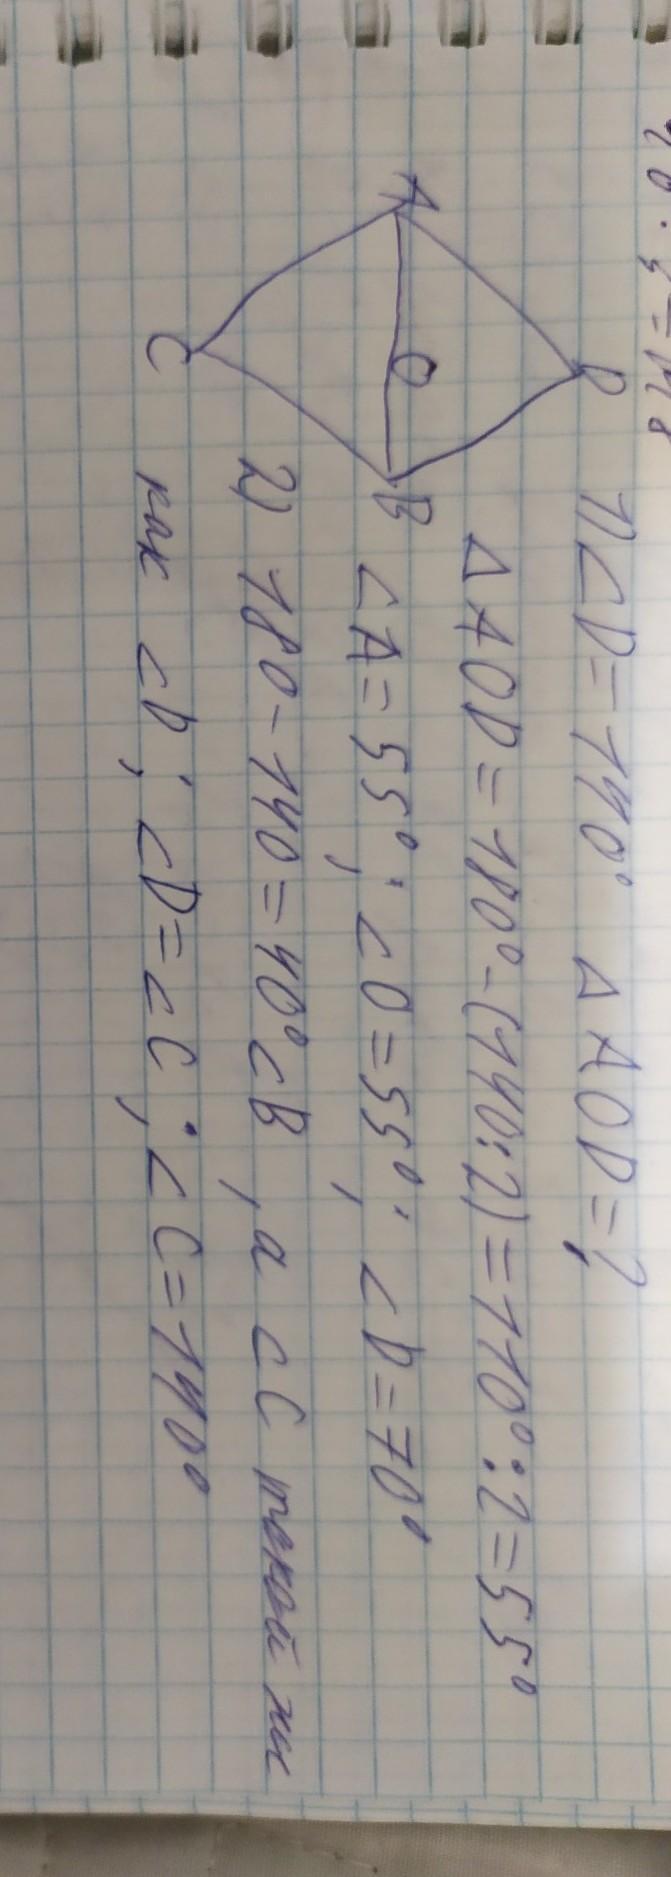 1) ∠D = 140° △ AOD = ?
△ AOD = 180° - (140:2) = 110° : 2 = 55°
∠A = 55° ; ∠O = 55° ; ∠D = 70°
2) 180 - 140 = 40° ∠B , а ∠C такой же
как ∠D ; ∠D = ∠C ; ∠C = 140°
D
A
O
B
C